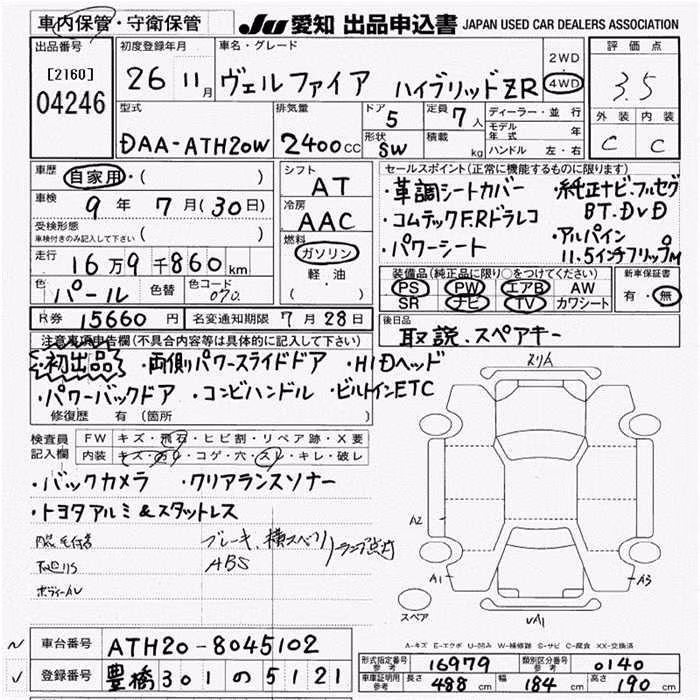 車内保管・守衛保管 JU 愛知 出品申込書 JAPAN USED CAR DEALERS ASSOCIATION
出品番号 初度登録年月 車名・グレード 2WD 評価点
[2160] 26 11月 ヴェルファイア ハイブリッドZR 4WD 3.5
04246 型式 排気量 ドア 定員 ディーラー・並行 外装 内装
5 7人 モデル年式 年
DAA-ATH20W 2400cc 形状 SW 積載 kg ハンドル 左・右 C C
車歴 自家用・( ) シフト AT セールスポイント(正常に機能するものに限ります)
車検 9年 7月(30日) 冷房 AAC ・革調シートカバー ・純正ナビ.フルセグ
受検形態 ・コムテックF.Rドラレコ BT.DVD
車検付きのみ記入して下さい ( ) 燃料 ・パワーシート ・アルパイン
走行 16万9千860km ガソリン 11.5インチフリップM
軽油 装備品(純正品に限り○をつけてください) 新車保証書
色 パール 色替 色コード 070. ( ) PS PW エアB AW 有・無
SR ナビ TV カワシート
R券 15660円 名変通知期限 7月28日 後日品
注意事項申告欄(不具合内容等は具体的に記入して下さい) 取説、スペアキー
初出品 ・両側パワースライドドア ・HIDヘッド
・パワーバックドア ・コンビハンドル ・ビルトインETC
修復歴 有(箇所 )
検査員記入欄 FW キズ・飛石・ヒビ割・リペア跡・X要
内装 キズ・汚れ・コゲ・穴・スレ・キレ・破レ
・バックカメラ ・クリアランスソナー
・トヨタアルミ&スタットレス A2
ブレーキ、横スベリ ランプ点灯
ABS A1 A3
スペア
A-キズ E-エクボ U-凹み W-補修跡 S-サビ C-腐食 XX-交換済
車台番号 ATH20-8045102
登録番号 豊橋301の5121
形式指定番号 参考 16979 類別区分番号 参考 0140
車庫証明用 参考 長さ 488cm 幅 184cm 高さ 190cm